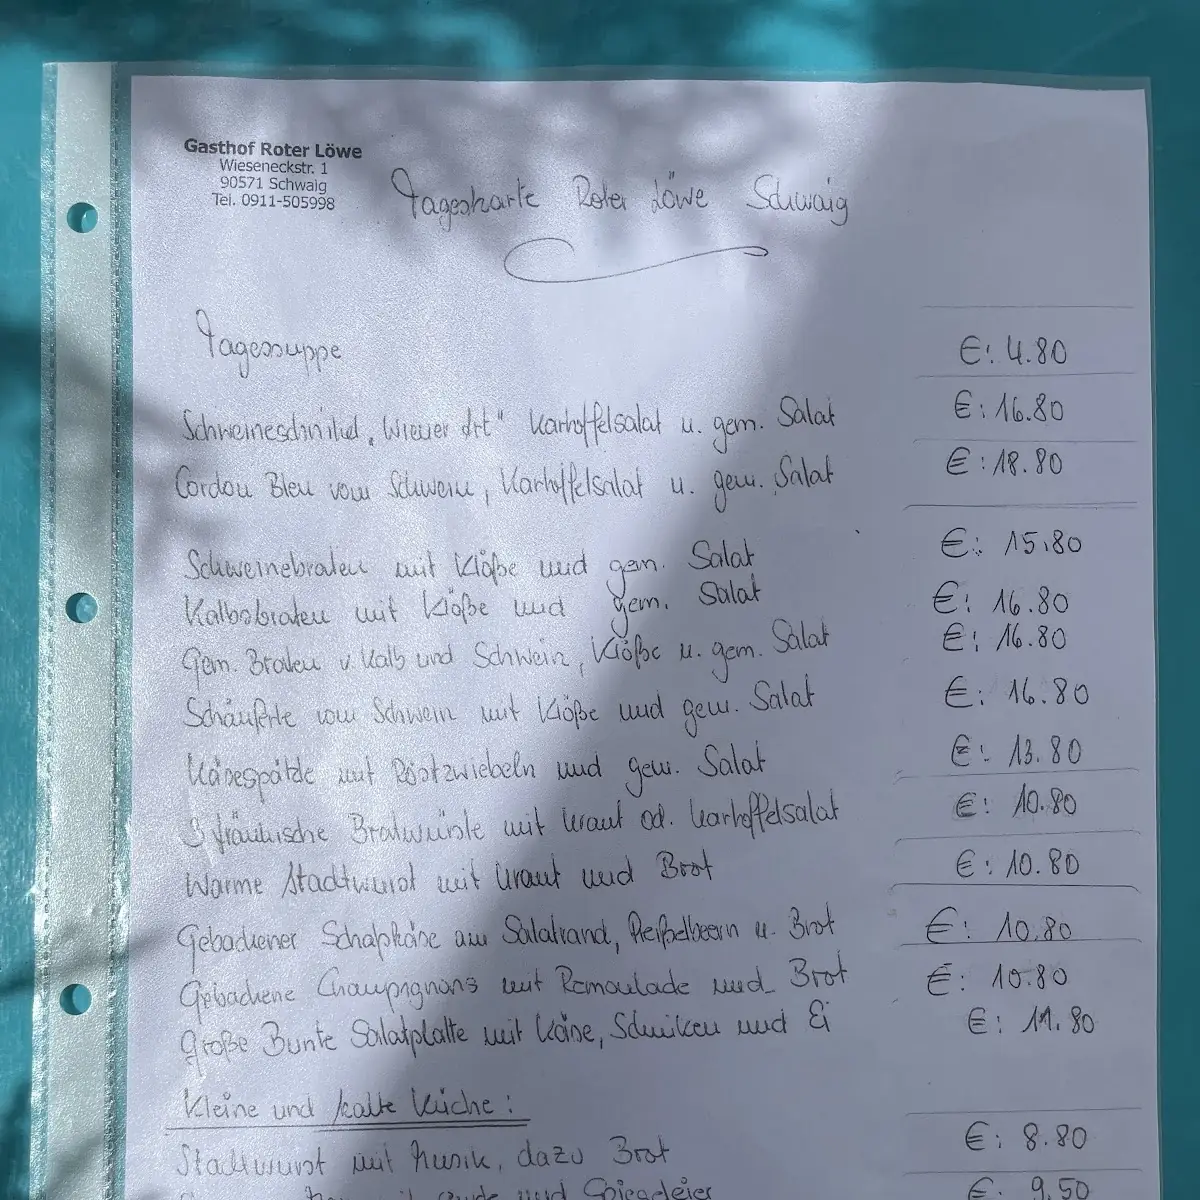 Gasthof Roter Löwe
Wieseneckstr. 1
90571 Schwaig
Tel. 0911-505998
Tageskarte Roter Löwe Schwaig
Tagessuppe €: 4.80
Schweineschnitzel „Wiener Art" Kartoffelsalat u. gem. Salat €: 16.80
Cordon Bleu vom Schwein, Kartoffelsalat u. gem. Salat €: 18.80
Schweinebraten mit Klöße und gem. Salat €: 15.80
Kalbsbraten mit Klöße und gem. Salat €: 16.80
Gem. Braten v. Kalb und Schwein, Klöße u. gem. Salat €: 16.80
Schäuferle vom Schwein mit Klöße und gem. Salat €: 16.80
Käsespätzle mit Röstzwiebeln und gem. Salat €: 13.80
3 fränkische Bratwürste mit Kraut od. Kartoffelsalat €: 10.80
Warme Stadtwurst mit Kraut und Brot €: 10.80
Gebackener Schafskäse am Salatrand, Preißelbeern u. Brot €: 10.80
Gebackene Champignons mit Remoulade und Brot €: 10.80
Große Bunte Salatplatte mit Käse, Schinken und Ei €: 11.80
Kleine und kalte Küche:
Stadtwurst mit Musik, dazu Brot €: 8.80
und Spiegeleier €: 9.50